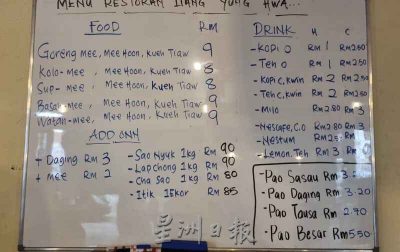 MENU RESTORAN LIANG YUNG HWA...
FOOD RM
Goreng mee, Mee Hoon, Kueh Tiaw 9
Kolo-mee, Mee Hoon, Kueh Tiaw 8
Sup-mee, Mee Hoon, Kueh Tiaw 8
Basah-mee, Mee Hoon, Kueh Tiaw 9
Watan-mee, Mee Hoon, Kueh Tiaw 9
ADD ONN
+ Daging RM 3
+ mee RM 2
- Sao Nyuk 1kg RM 90
- Lap Chong 1kg RM 90
- Cha Sao 1kg RM 80
- Itik 1Ekor RM 85
DRINK H C
- Kopi O RM 1 RM 2.50
- Teh O RM 1 RM 2.50
- Kopi C, Kwin RM 2 RM 2.50
- Teh C, Kwin RM 2 RM 2.50
- Milo RM 2.80 RM 3
- Nescafe, C,O RM 2.80 RM 3
- Nestum RM
- Lemon Teh RM 3
- Pao Sasau RM 3
- Pao Daging RM 3.20
- Pao Tausa RM 2.70
- Pao Besar RM 5.50
星洲日報